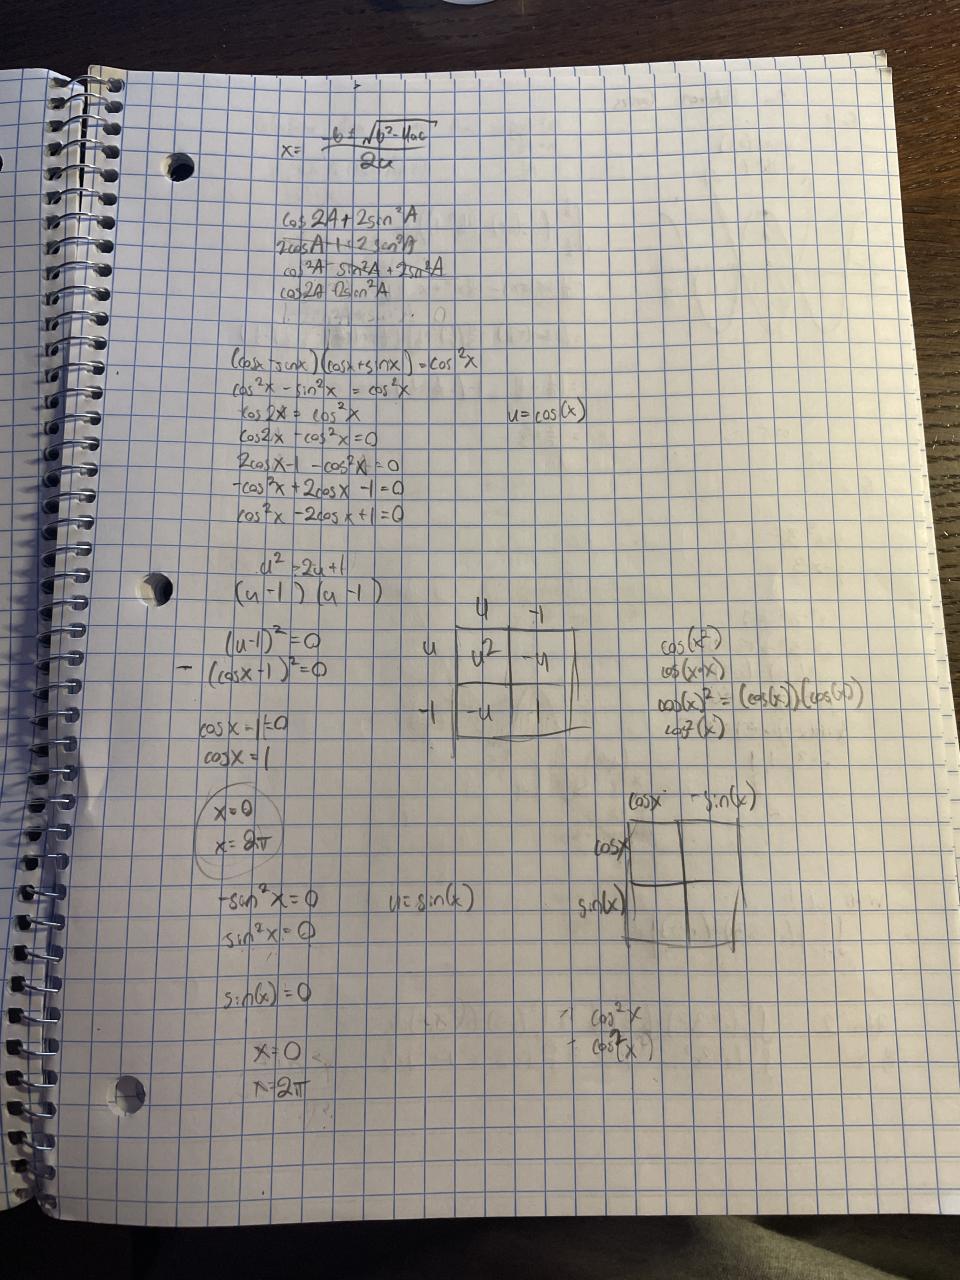 x= -b ± √b²-4ac
2a
cos2A+2sin²A
2cosA-1+2sin²A
cos²A-sin²A+2sin²A
cos2A+2sin²A
(cosx-sinx)(cosx+sinx)=cos²x
cos²x-sin²x=cos²x
cos2x=cos²x
u=cos(x)
cos2x-cos²x=0
2cosx-1-cos²x=0
-cos²x+2cosx-1=0
cos²x-2cosx+1=0
u²-2u+1
(u-1)(u-1)
(u-1)²=0
-(cosx-1)²=0
cosx-1=0
cosx=1
x=0
x=2π
u -1
u u² -u
-1 -u 1
cos(x²)
cos(x·x)
cos(x)²=(cos(x))(cos(x))
cos²(x)
cosx -sin(x)
cosx
sin(x)
-sin²x=0
u=sin(x)
sin²x=0
sin(x)=0
x=0
x=2π
cos²x
cos²(x)